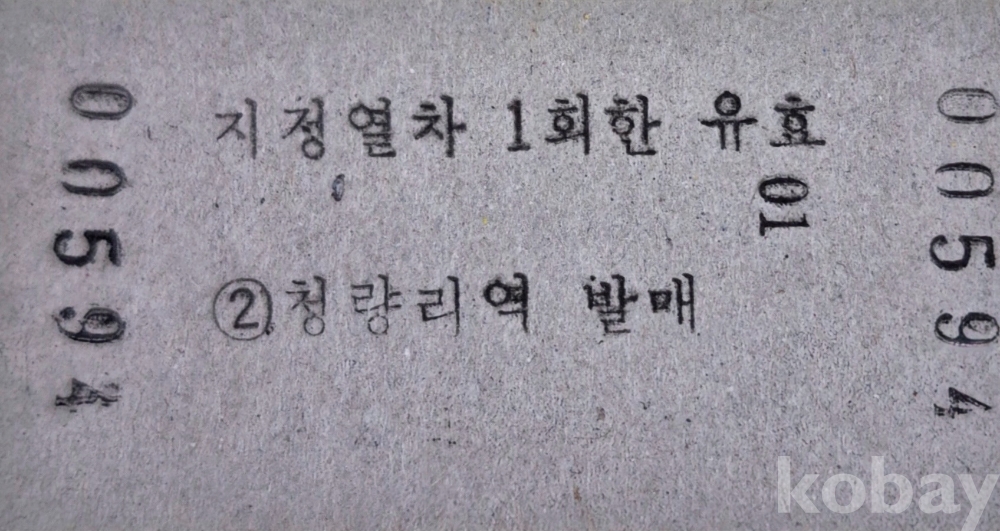 00594
지정열차 1회한 유효
01
②청량리역 발매
00594
kobay